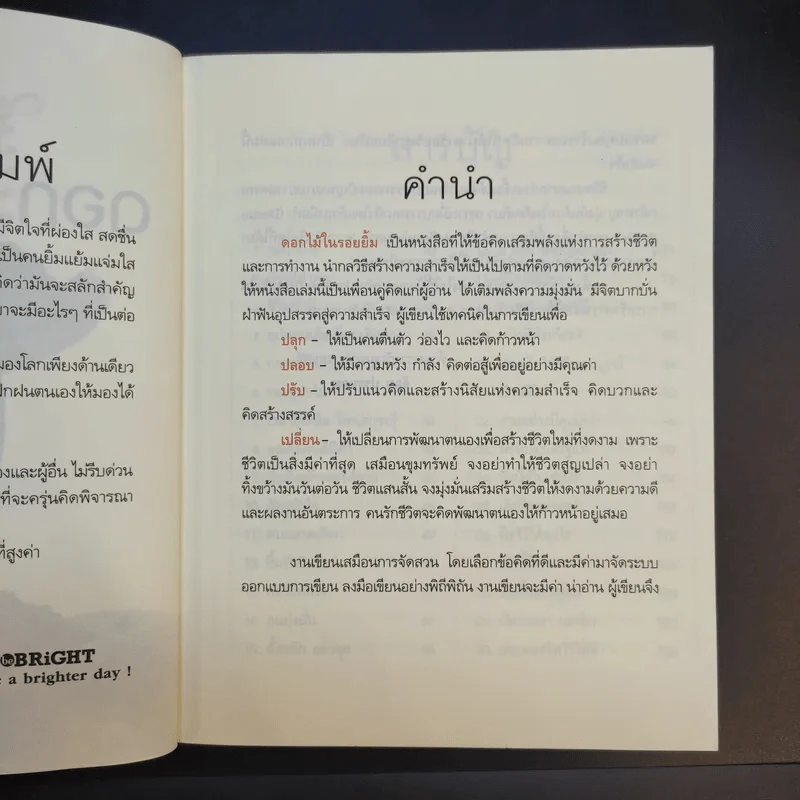 มพ์
มีจิตใจที่ผ่องใส สดชื่น
เป็นคนยิ้มแย้มแจ่มใส
คิดว่ามันจะสลักสำคัญ
จะมีอะไรๆ ที่เป็นต่อ
มองโลกเพียงด้านเดียว
ฝึกฝนตนเองให้มองได้
และผู้อื่น ไม่รีบด่วน
ที่จะครุ่นคิดพิจารณา
ที่สูงค่า
BRiGHT
a brighter day !
คำนำ
ดอกไม้ในรอยยิ้ม เป็นหนังสือที่ให้ข้อคิดเสริมพลังแห่งการสร้างชีวิต
และการทำงาน นำกลวิธีสร้างความสำเร็จให้เป็นไปตามที่คิดวาดหวังไว้ ด้วยหวัง
ให้หนังสือเล่มนี้เป็นเพื่อนคู่คิดแก่ผู้อ่าน ได้เติมพลังความมุ่งมั่น มีจิตบากบั่น
ฝ่าฟันอุปสรรคสู่ความสำเร็จ ผู้เขียนใช้เทคนิคในการเขียนเพื่อ
ปลุก – ให้เป็นคนตื่นตัว ว่องไว และคิดก้าวหน้า
ปลอบ – ให้มีความหวัง กำลัง คิดต่อสู้เพื่ออยู่อย่างมีคุณค่า
ปรับ – ให้ปรับแนวคิดและสร้างนิสัยแห่งความสำเร็จ คิดบวกและ
คิดสร้างสรรค์
เปลี่ยน – ให้เปลี่ยนการพัฒนาตนเองเพื่อสร้างชีวิตใหม่ที่งดงาม เพราะ
ชีวิตเป็นสิ่งมีค่าที่สุด เสมือนขุมทรัพย์ จงอย่าทำให้ชีวิตสูญเปล่า จงอย่า
ทิ้งขว้างมันวันต่อวัน ชีวิตแสนสั้น จงมุ่งมั่นเสริมสร้างชีวิตให้งดงามด้วยความดี
และผลงานอันตระการ คนรักชีวิตจะคิดพัฒนาตนเองให้ก้าวหน้าอยู่เสมอ
งานเขียนเสมือนการจัดสวน โดยเลือกข้อคิดที่ดีและมีค่ามาจัดระบบ
ออกแบบการเขียน ลงมือเขียนอย่างพิถีพิถัน งานเขียนจะมีค่า น่าอ่าน ผู้เขียนจึง